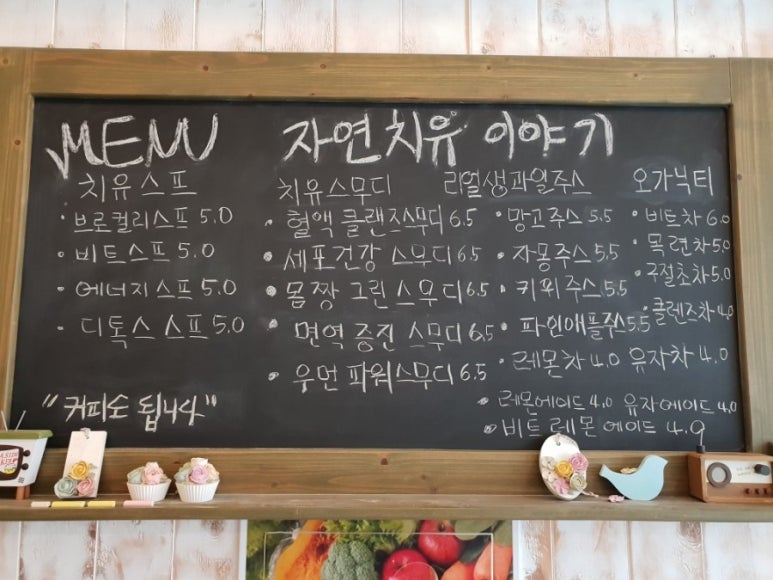 MENU 자연치유 이야기
치유스프
· 브로컬리스프 5.0
· 비트스프 5.0
· 에너지스프 5.0
· 디톡스 스프 5.0
"커피도 됩니다"
치유스무디
· 혈액 클랜즈스무디 6.5
· 세포건강 스무디 6.5
· 몸짱 그린 스무디 6.5
· 면역 증진 스무디 6.5
· 우먼 파워스무디 6.5
리얼생과일주스
· 망고주스 5.5
· 자몽주스 5.5
· 키위주스 5.5
· 파인애플주스 5.5
· 레몬차 4.0 유자차 4.0
· 레몬에이드 4.0 유자에이드 4.0
· 비트레몬 에이드 4.9
오가닉티
· 비트차 6.0
· 목련차 5.0
· 구절초차 5.0
· 클렌즈차 4.0